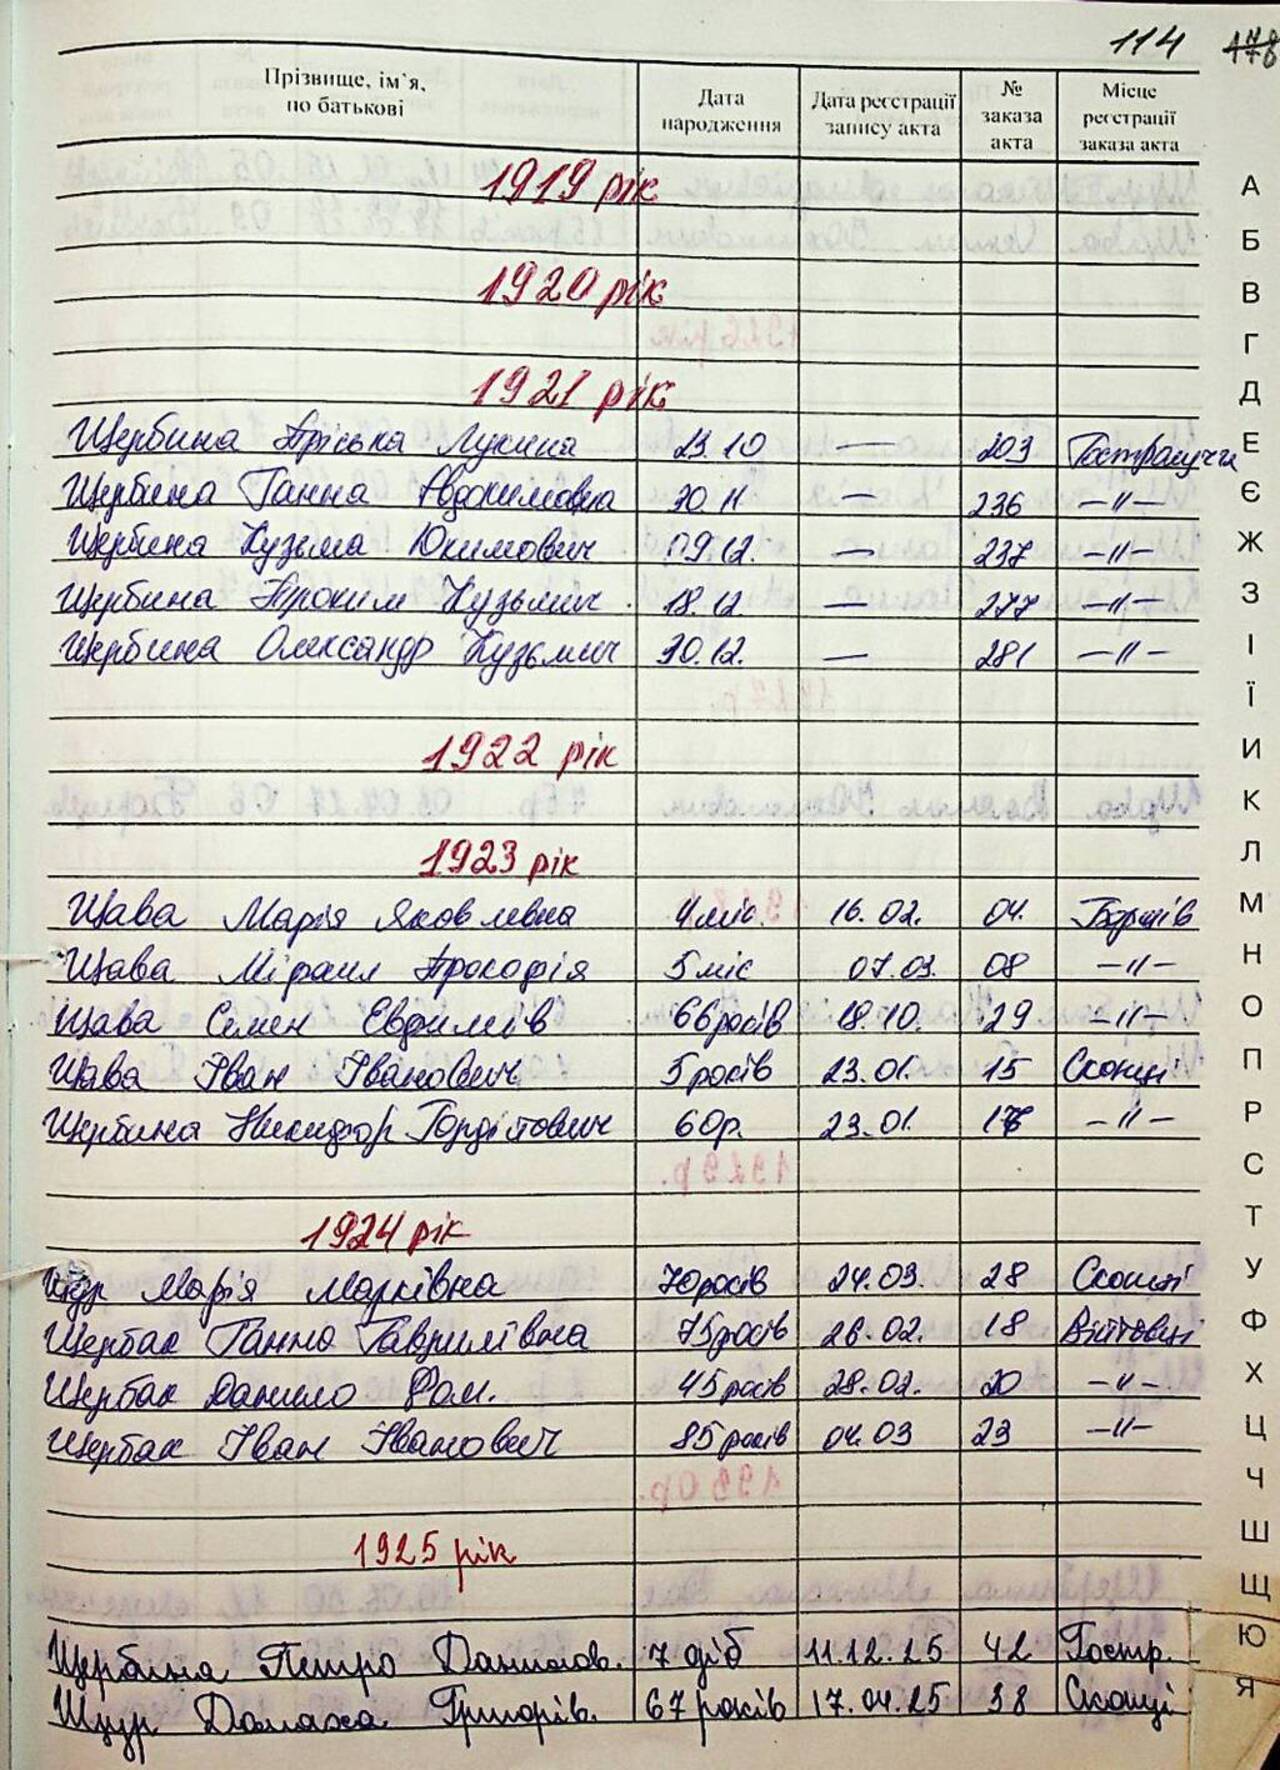 114 178
Прізвище, ім`я, по батькові Дата народження Дата реєстрації запису акта № заказа акта Місце реєстрації заказа акта
1919 рік
1920 рік
1921 рік
Щербина Пріська Лукина 23.10 — 203 Гостролуччя
Щербина Ганна Авдокимовна 30.11 — 236 —"—
Щербина Кузьма Юкимович 09.12. — 237 —"—
Щербина Проким Кузьмич 18.12 — 277 —"—
Щербина Олександр Кузьмич 30.12. — 281 —"—
1922 рік
1923 рік
Щава Марія Яковлевна 4 міс. 16.02. 04. Борщів
Щава Міраил Прокофія 5 міс 07.03. 08 —"—
Щава Семен Евдимів 66 росів 18.10. 29 —"—
Щава Іван Іванович 5 росів 23.01. 15 Скопці
Щербина Никифор Гордійович 60р. 23.01. —"—
1924 рік
Щур Марія Марківна 70 росів 24.03. 28 Скопці
Щербак Ганна Гаврилівна 75 росів 26.02. 18 Війтовці
Щербак Данило Ром. 45 росів 28.02. 20 —"—
Щербак Іван Іванович 85 росів 04.03 23 —"—
1925 рік
Щербина Петро Данилов. 7 діб 11.12.25 42 Гостр.
Щур Домаха Григорів. 67 років 17.04.25 38 Скопці
А
Б
В
Г
Д
Е
Є
Ж
З
І
Ї
И
К
Л
М
Н
О
П
Р
С
Т
У
Ф
Х
Ц
Ч
Ш
Щ
Ю
Я